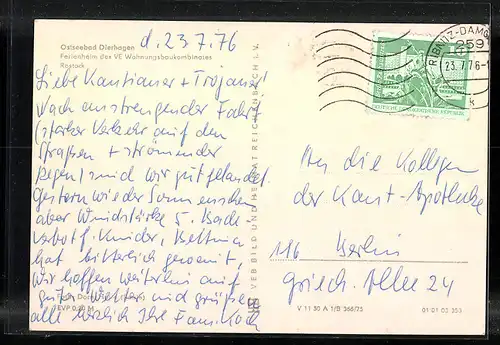 Ostseebad Dierhagen
Ferienheim des VE Wohnungsbaukombinates
Rostock
d. 23.7.76
Liebe Kantianer + Trojaner!
Nach anstrengender Fahrt
(starker Verkehr auf den
Straßen + strömender
Regen) sind wir gut gelandet.
Gestern wieder Sonnenschein
aber Windstärke 5. Bade-
verbot f. Kinder, Bettina
hat bitterlich geweint.
Wir hoffen weiterhin auf
gutes Wetter und grüßen
alle herzlich Ihre Fam. Koch
Foto:
EVP 0,20 M
VEB BILD UND HEIMAT REICHENBACH I. V.
RIBNITZ-DAMG
259
23.7.76-1
k
DEUTSCHE DEMOKRATISCHE REPUBLIK
An die Kollegen
der Kant-Apotheke
116 Berlin
Griech. Allee 24
V 11 50 A 1/B 366/75
01 01 02 353